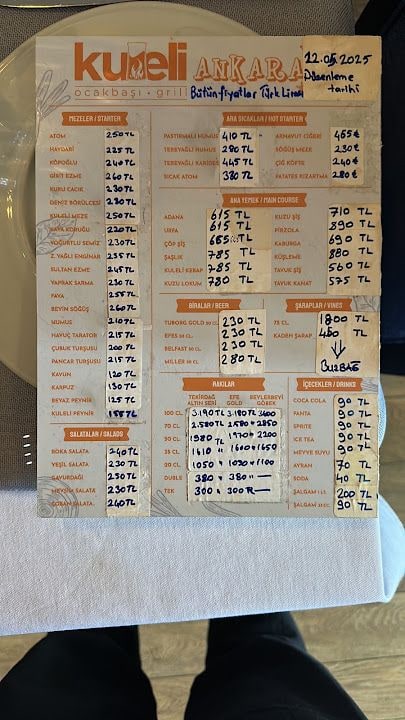 kuleli ANKARA
ocakbaşı • grill
Bütün fiyatlar Türk Lirası
12.05.2025
Düzenleme
tarihi
MEZELER / STARTER
ATOM 250 TL
HAYDARİ 225 TL
KÖPOĞLU 240 TL
GİRİT EZME 260 TL
KURU CACIK 230 TL
DENİZ BÖRÜLCESİ 230 TL
KULELİ MEZE 250 TL
HAYA KORUĞU 220 TL
YOĞURTLU SEMİZ 230 TL
Z. YAĞLI ENGİNAR 235 TL
SULTAN EZME 245 TL
YAPRAK SARMA 230 TL
FAVA 255 TL
BEYİN SÖĞÜŞ 260 TL
HUMUS 210 TL
HAVUÇ TARATOR 215 TL
ÇUBUK TURŞUSU 200 TL
PANCAR TURŞUSU 215 TL
KAVUN 120 TL
KARPUZ 130 TL
BEYAZ PEYNİR 125 TL
KULELİ PEYNİR 155 TL
SALATALAR / SALADS
ROKA SALATA 240 TL
YEŞİL SALATA 230 TL
GAVURDAĞI 230 TL
MEVSİM SALATA 230 TL
ÇOBAN SALATA 240 TL
ARA SICAKLAR / HOT STARTER
PASTIRMALI HUMUS 410 TL
TEREYAĞLI HUMUS 280 TL
TEREYAĞLI KARİDES 445 TL
SICAK ATOM 380 TL
ARNAVUT CİĞERİ 465 ₺
SÖĞÜŞ MEZE 230 ₺
ÇİĞ KÖFTE 240 ₺
PATATES KIZARTMA 280 ₺
ANA YEMEK / MAIN COURSE
ADANA 615 TL
URFA 615 TL
ÇÖP ŞİŞ 685 TL
ŞAŞLIK 785 TL
KULELİ KEBAP 785 TL
KUZU LOKUM 780 TL
KUZU ŞİŞ 710 TL
PİRZOLA 890 TL
KABURGA 690 TL
KÜŞLEME 880 TL
TAVUK ŞİŞ 560 TL
TAVUK KANAT 575 TL
BİRALAR / BEER
TUBORG GOLD 50 CL. 230 TL
EFES 50 CL. 230 TL
BELFAST 50 CL. 230 TL
MILLER 50 CL. 280 TL
ŞARAPLAR / VINES
75 CL. 1800 TL
KADEH ŞARAP 450 TL
BUZBAĞ
RAKILAR
TEKİRDAĞ ALTIN SERİ EFE GOLD BEYLERBEYİ GÖBEK
100 CL. 3.190 TL 3.180 TL 3600
70 CL. 2.580 TL 2580 " 2850
50 CL. 1980 TL 1970 " 2200
35 CL. 1610 " 1600 " 1650
20 CL. 1050 " 1030 " 1100
DUBLE 380 " 380 " —
TEK 300 " 300 TL —
İÇECEKLER / DRINKS
COCA COLA 90 TL
FANTA 90 TL
SPRITE 90 TL
ICE TEA 90 TL
MEYVE SUYU 90 TL
AYRAN 70 TL
SODA 40 TL
ŞALGAM 1 LT. 200 TL
ŞALGAM 33 CL. 90 TL